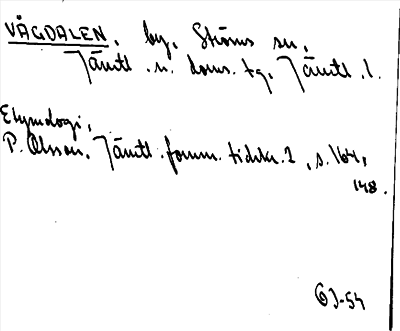 VÅGDALEN, by, Ströms sn,
Jämtl. n. doms. tg, Jämtl. l.
Etymologi,
P. Olsson, Jämtl. fornm. tidskr. 1, s. 164,
148.
GJ-54